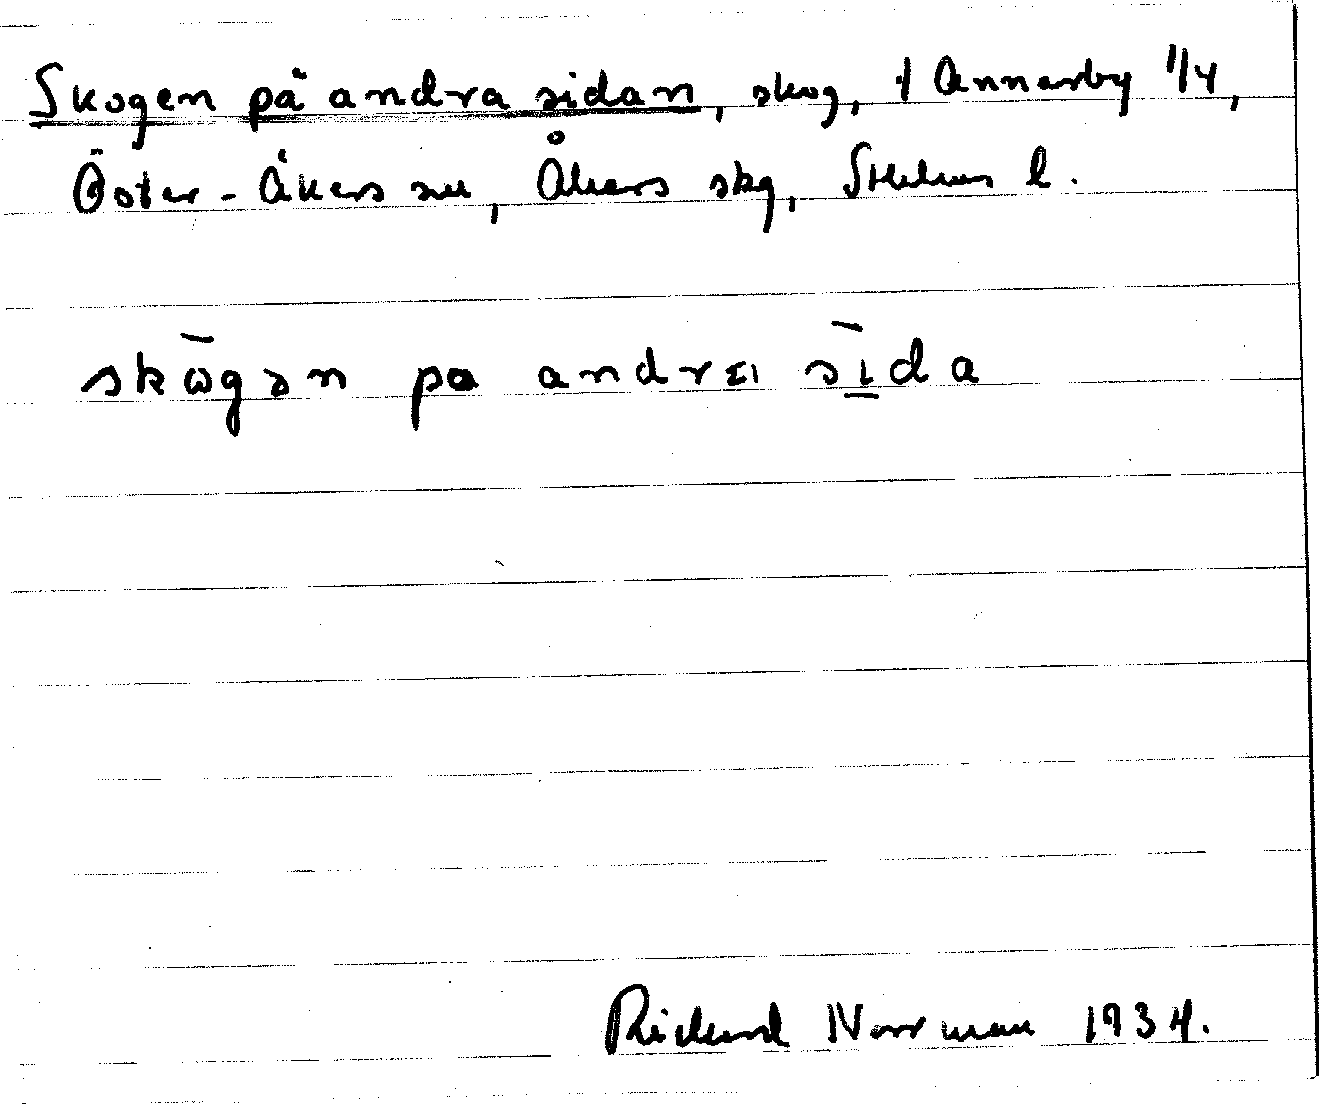 Skogen på andra sidan, skog, t Annersby 1/4,
Öster-Åkers sn, Åkers skg, Sthlms l.
skōgən pa andrɛi sīda
Rickard Norrman 1934.